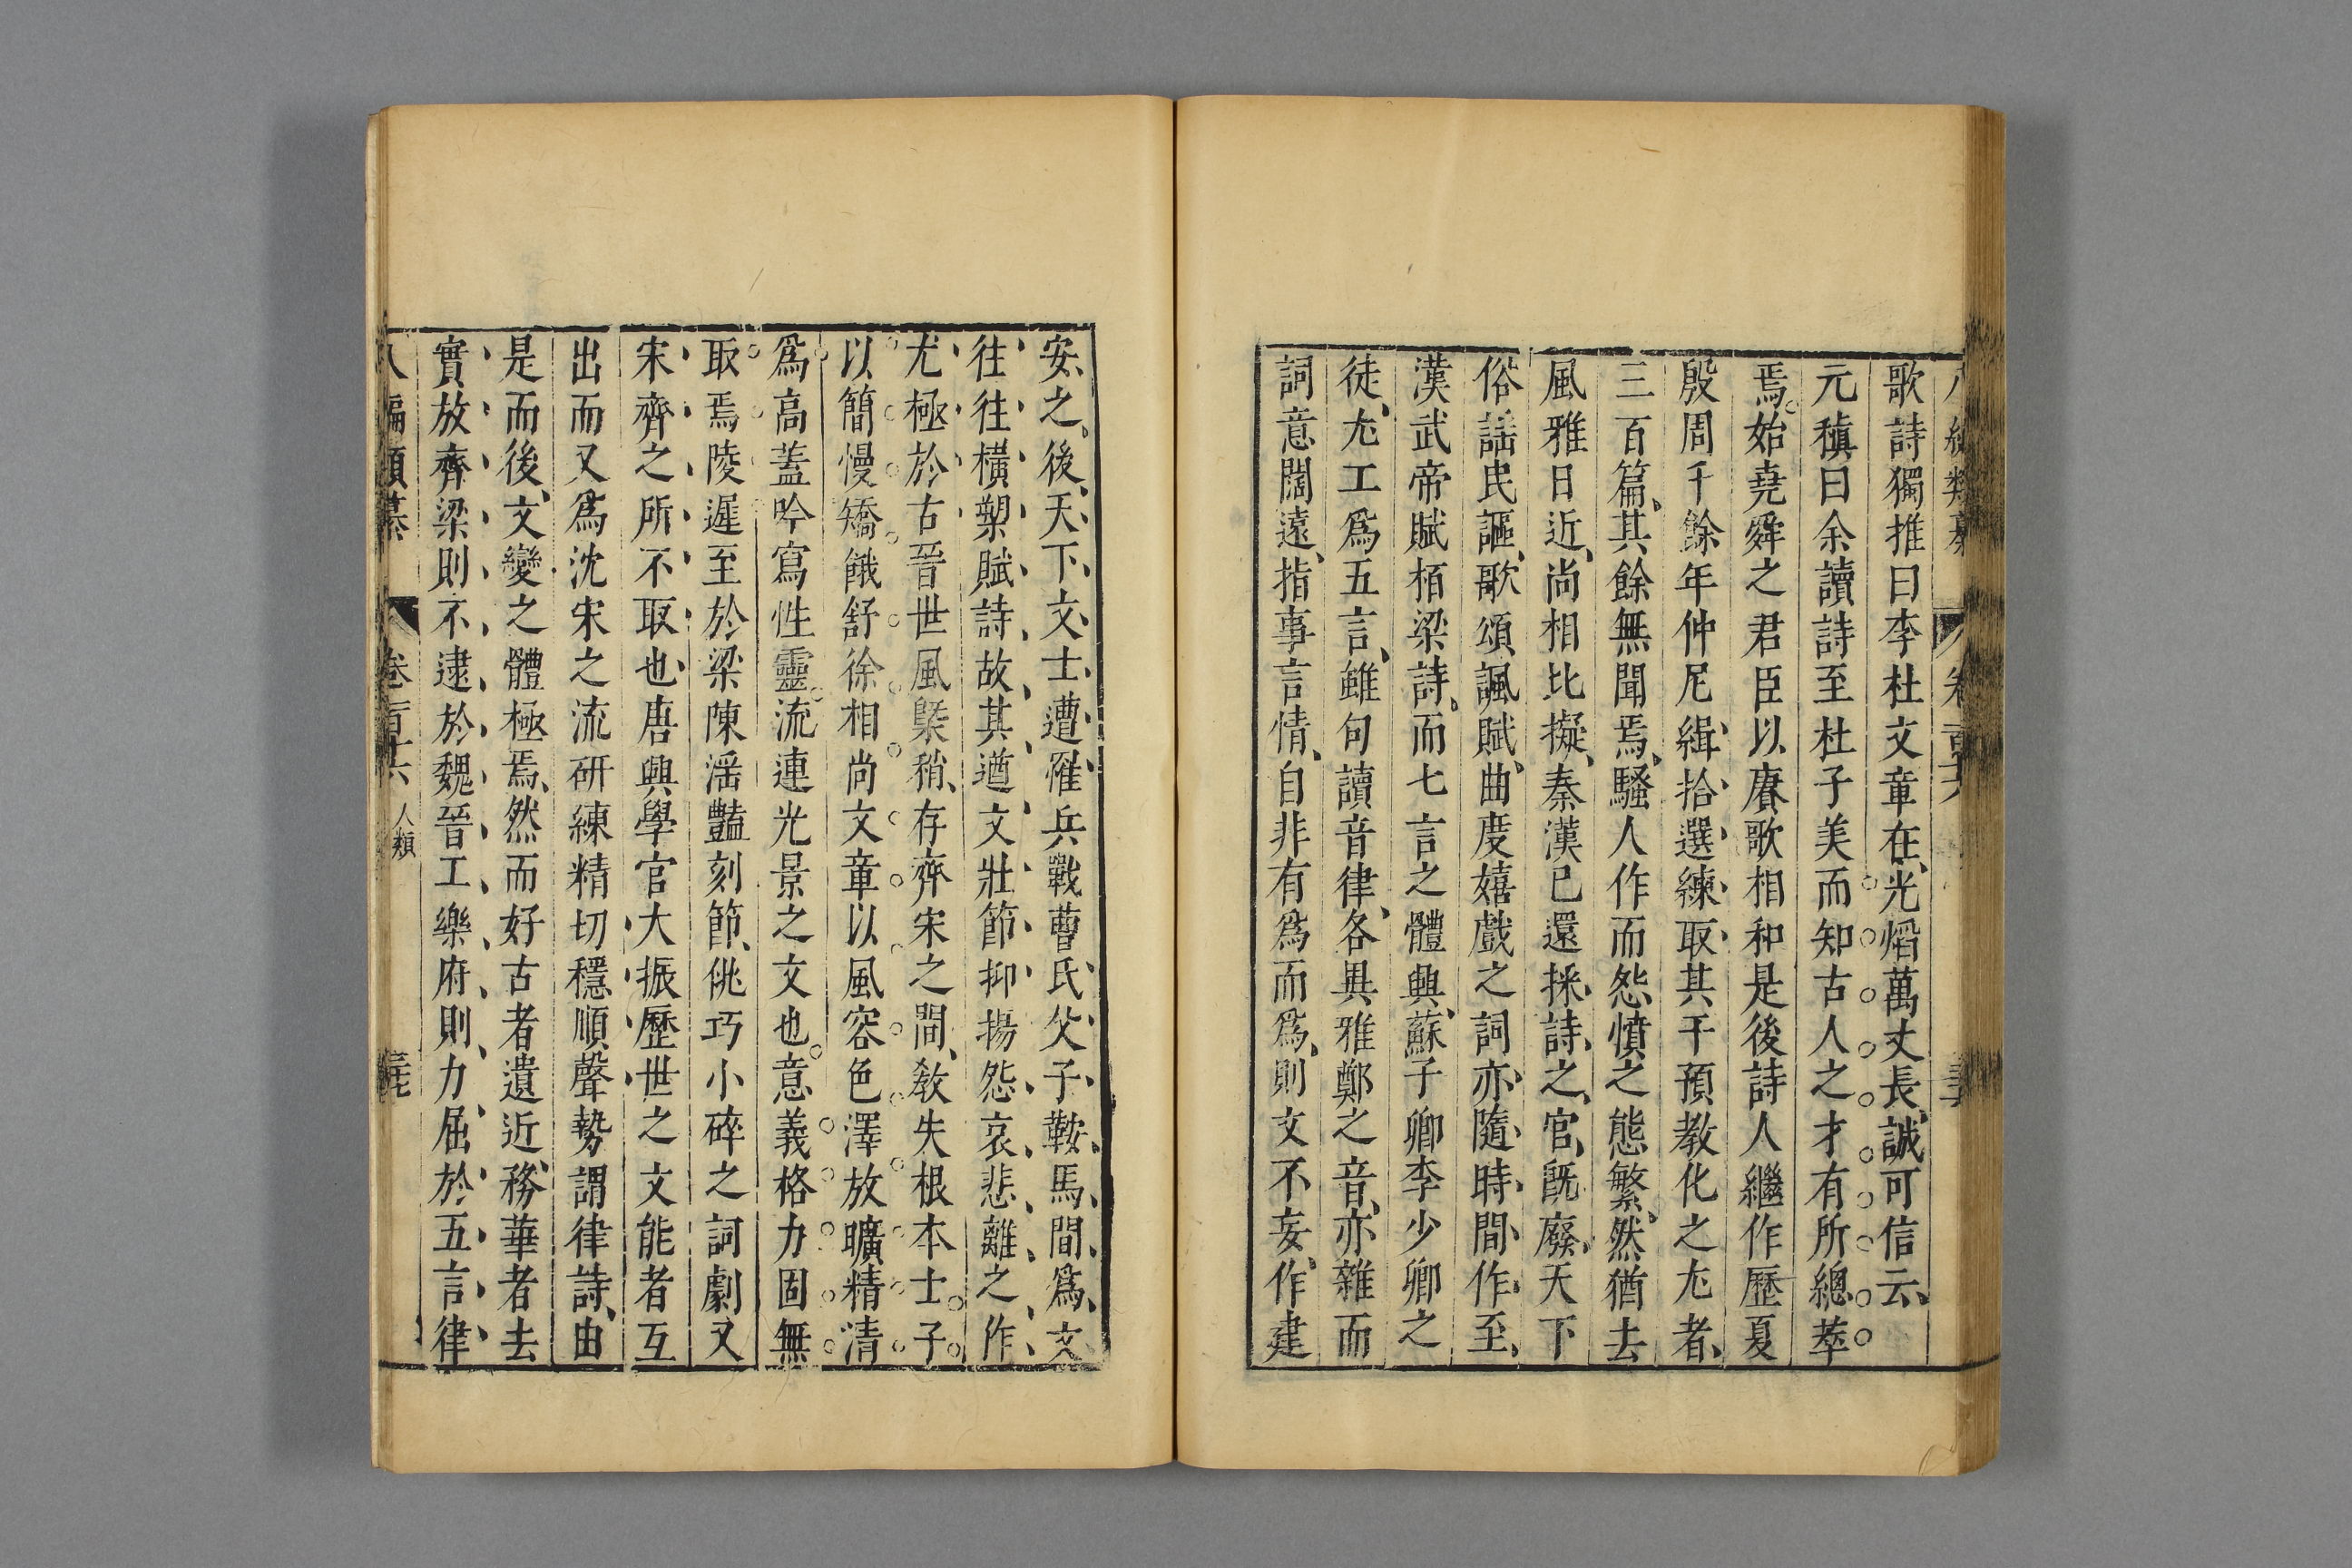 八編類纂 卷百十六
歌詩獨推曰李杜文章在光熖萬丈長誠可信云
元稹曰余讀詩至杜子美而知古人之才有所總萃
焉始堯舜之君臣以賡歌相和是後詩人繼作歷夏
殷周千餘年仲尼緝拾選練取其干預教化之尤者
三百篇其餘無聞焉騷人作而怨憤之態繁然猶去
風雅日近尚相比擬秦漢已還採詩之官旣廢天下
俗謡民謳歌頌諷賦曲度嬉戲之詞亦隨時間作至
漢武帝賦栢梁詩而七言之體興蘇子卿李少卿之
徒尤工爲五言雖句讀音律各異雅鄭之音亦雜而
詞意闊遠指事言情自非有爲而爲則文不妄作建
安之後天下文士遭罹兵戰曹氏父子鞍馬間爲文
往往橫槊賦詩故其遒文壯節抑揚怨哀悲離之作
尤極於古晉世風槩稍存齊宋之間教失根本士子
以簡慢矯餙舒徐相尚文章以風容色澤放曠精清
爲高蓋吟寫性靈流連光景之文也意義格力固無
取焉陵遲至於梁陳滛豔刻節佻巧小碎之詞劇又
宋齊之所不取也唐興學官大振歷世之文能者互
出而又爲沈宋之流研練精切穩順聲勢謂律詩由
是而後文變之體極焉然而好古者遺近務華者去
實放齊梁則不逮於魏晉工樂府則力屈於五言律
八編類纂 卷百十六 人類